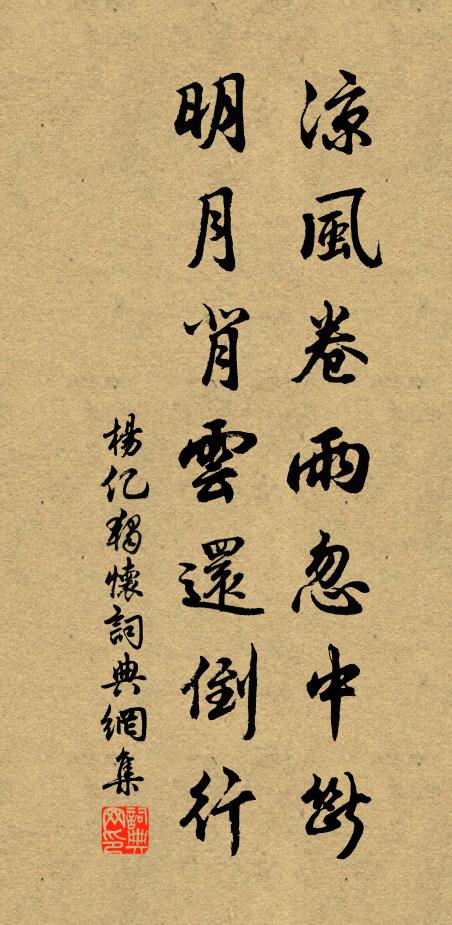 涼風卷雨忽中斷
明月背雲還倒行
楊億獨懷詞典網集
詞典
网印